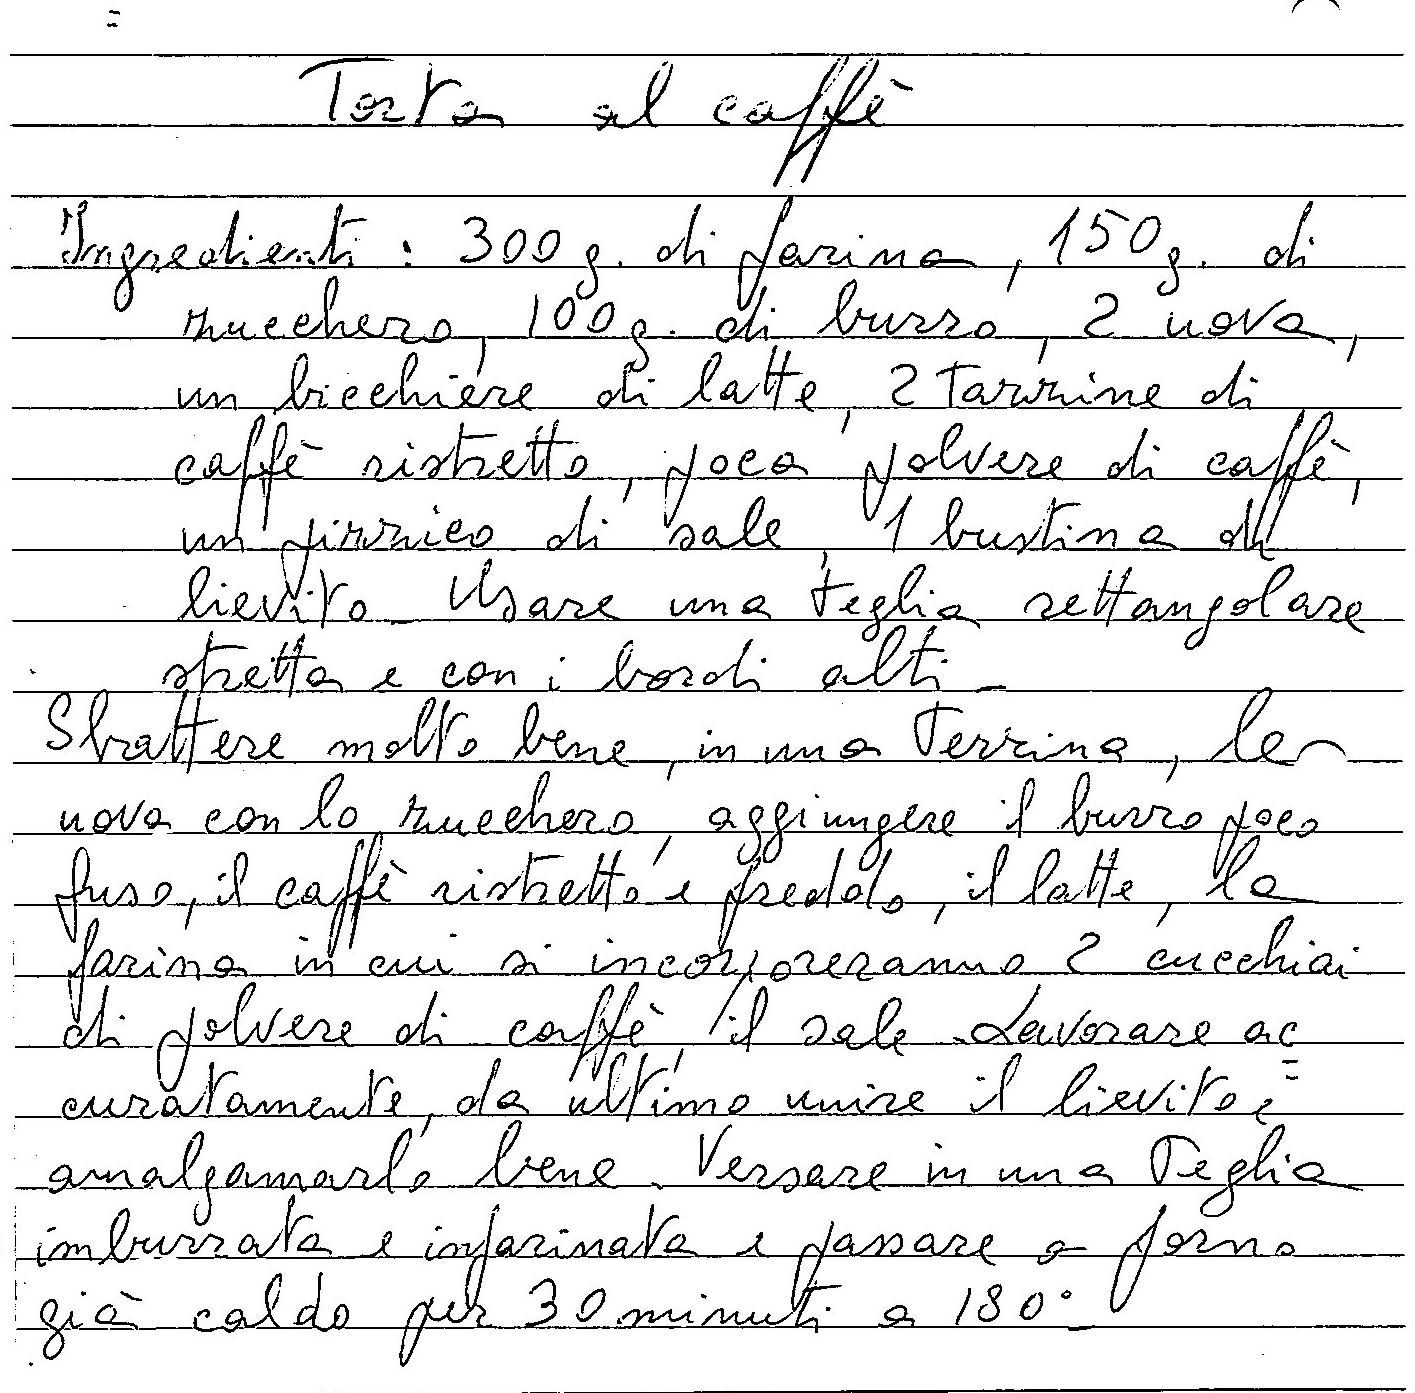 Torta al caffè
Ingredienti : 300 g. di farina, 150 g. di
zucchero, 100 g. di burro, 2 uova,
un bicchiere di latte, 2 tazzine di
caffè ristretto, poca polvere di caffè,
un pizzico di sale, 1 bustina di
lievito_ Usare una teglia rettangolare
stretta e con i bordi alti_
Sbattere molto bene, in una terrina, le
uova con lo zucchero, aggiungere il burro poco
fuso, il caffè ristretto e freddo, il latte, la
farina in cui si incorporeranno 2 cucchiai
di polvere di caffè, il sale. Lavorare ac=
curatamente, da ultimo unire il lievito e
amalgamarlo bene. Versare in una teglia
imburrata e infarinata e passare a forno
già caldo per 30 minuti a 180°_